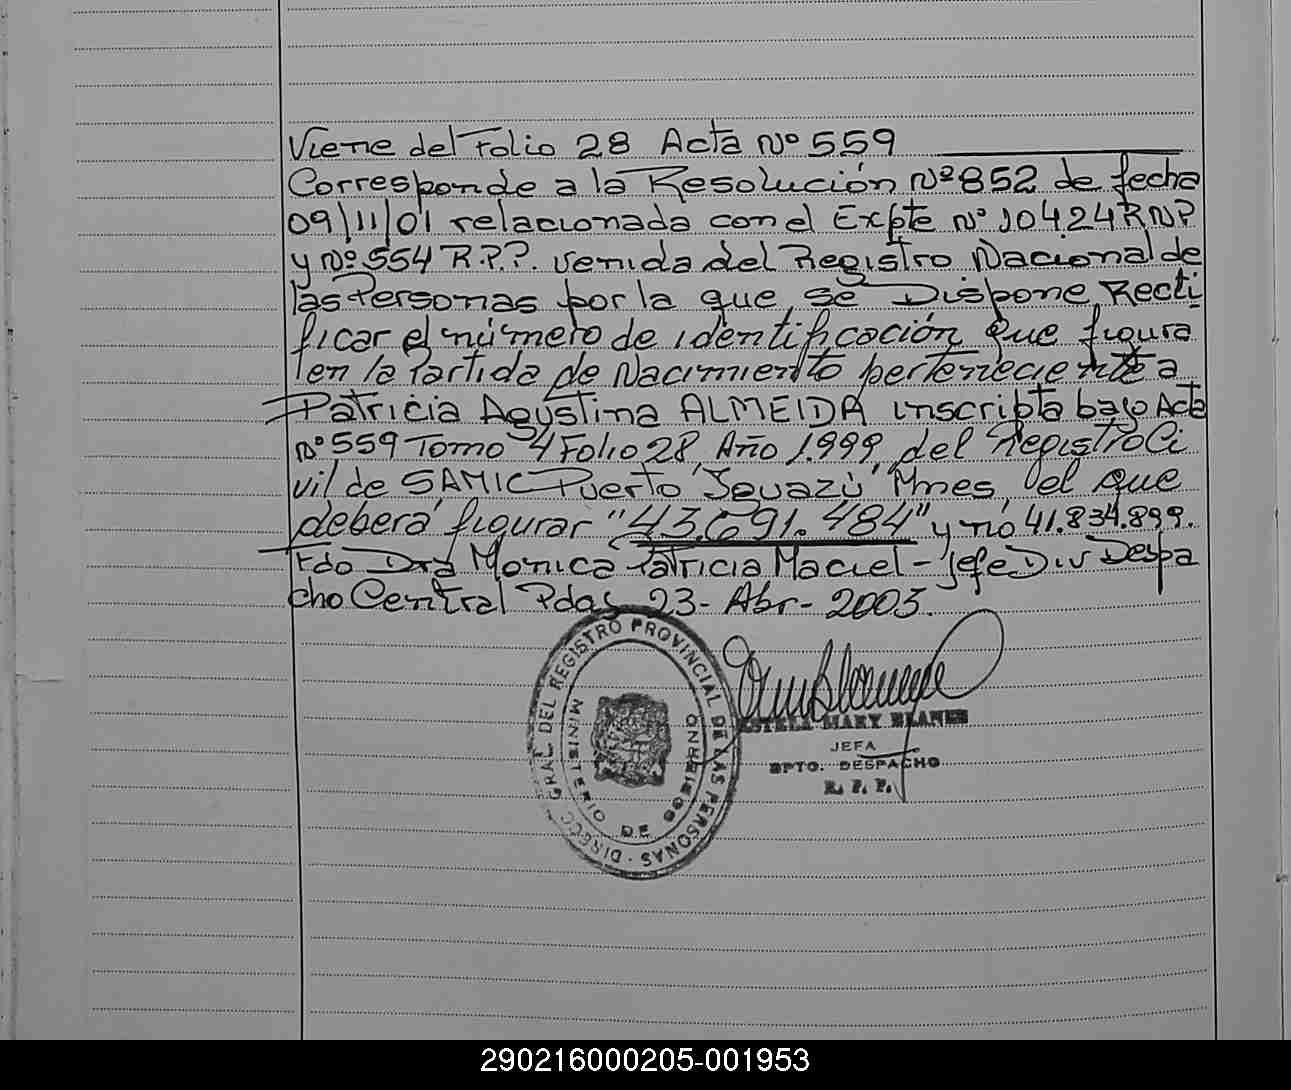 Viene del Folio 28 Acta Nº 559
Corresponde a la Resolución Nº 852 de fecha
09/11/01 relacionada con el Expte Nº 10424 R.N.P
y Nº 554 R.P.P. venida del Registro Nacional de
las Personas por la que se Dispone Recti
ficar el número de identificación que figura
en la Partida de Nacimiento perteneciente a
Patricia Agustina ALMEIDA inscripta bajo Acta
Nº 559 Tomo 4 Folio 28 Año 1.999 del Registro Ci
vil de SAMIC Puerto Iguazú Mnes, el que
deberá figurar "43.691.484" y no 41.834.899.
Fdo Dra Monica Patricia Maciel - Jefe Div Despa
cho Central Pdas 23 - Abr - 2003.
DIRECC. GRAL DEL REGISTRO PROVINCIAL DE LAS PERSONAS
MINISTERIO DE GOBIERNO
MARY BLANES
JEFA
DPTO. DESPACHO
R. P. P.
290216000205-001953